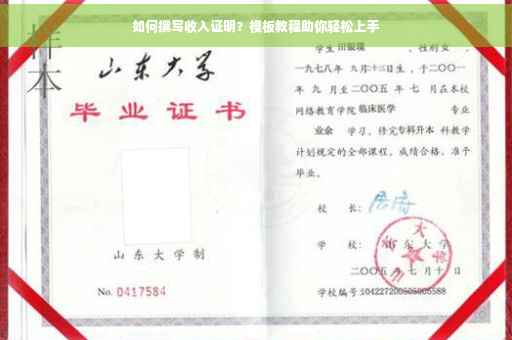 如何撰写收入证明？模板教程助你轻松上手
样本
山东大学
毕业证书
山东大学制
No. 0417584
学生 田银瑞 ，性别 女 ，
一九七八年 九月十三日生，于二〇〇一
年 九 月至二〇〇五 年 七 月在本校
网络教育学院 临床医学 专业
业余 学习，修完专科升本 科教学
计划规定的全部课程，成绩合格，准予
毕业。
校 长：
学 校： 山东大学
二〇〇五 年 七 月 十 日
学校编号：